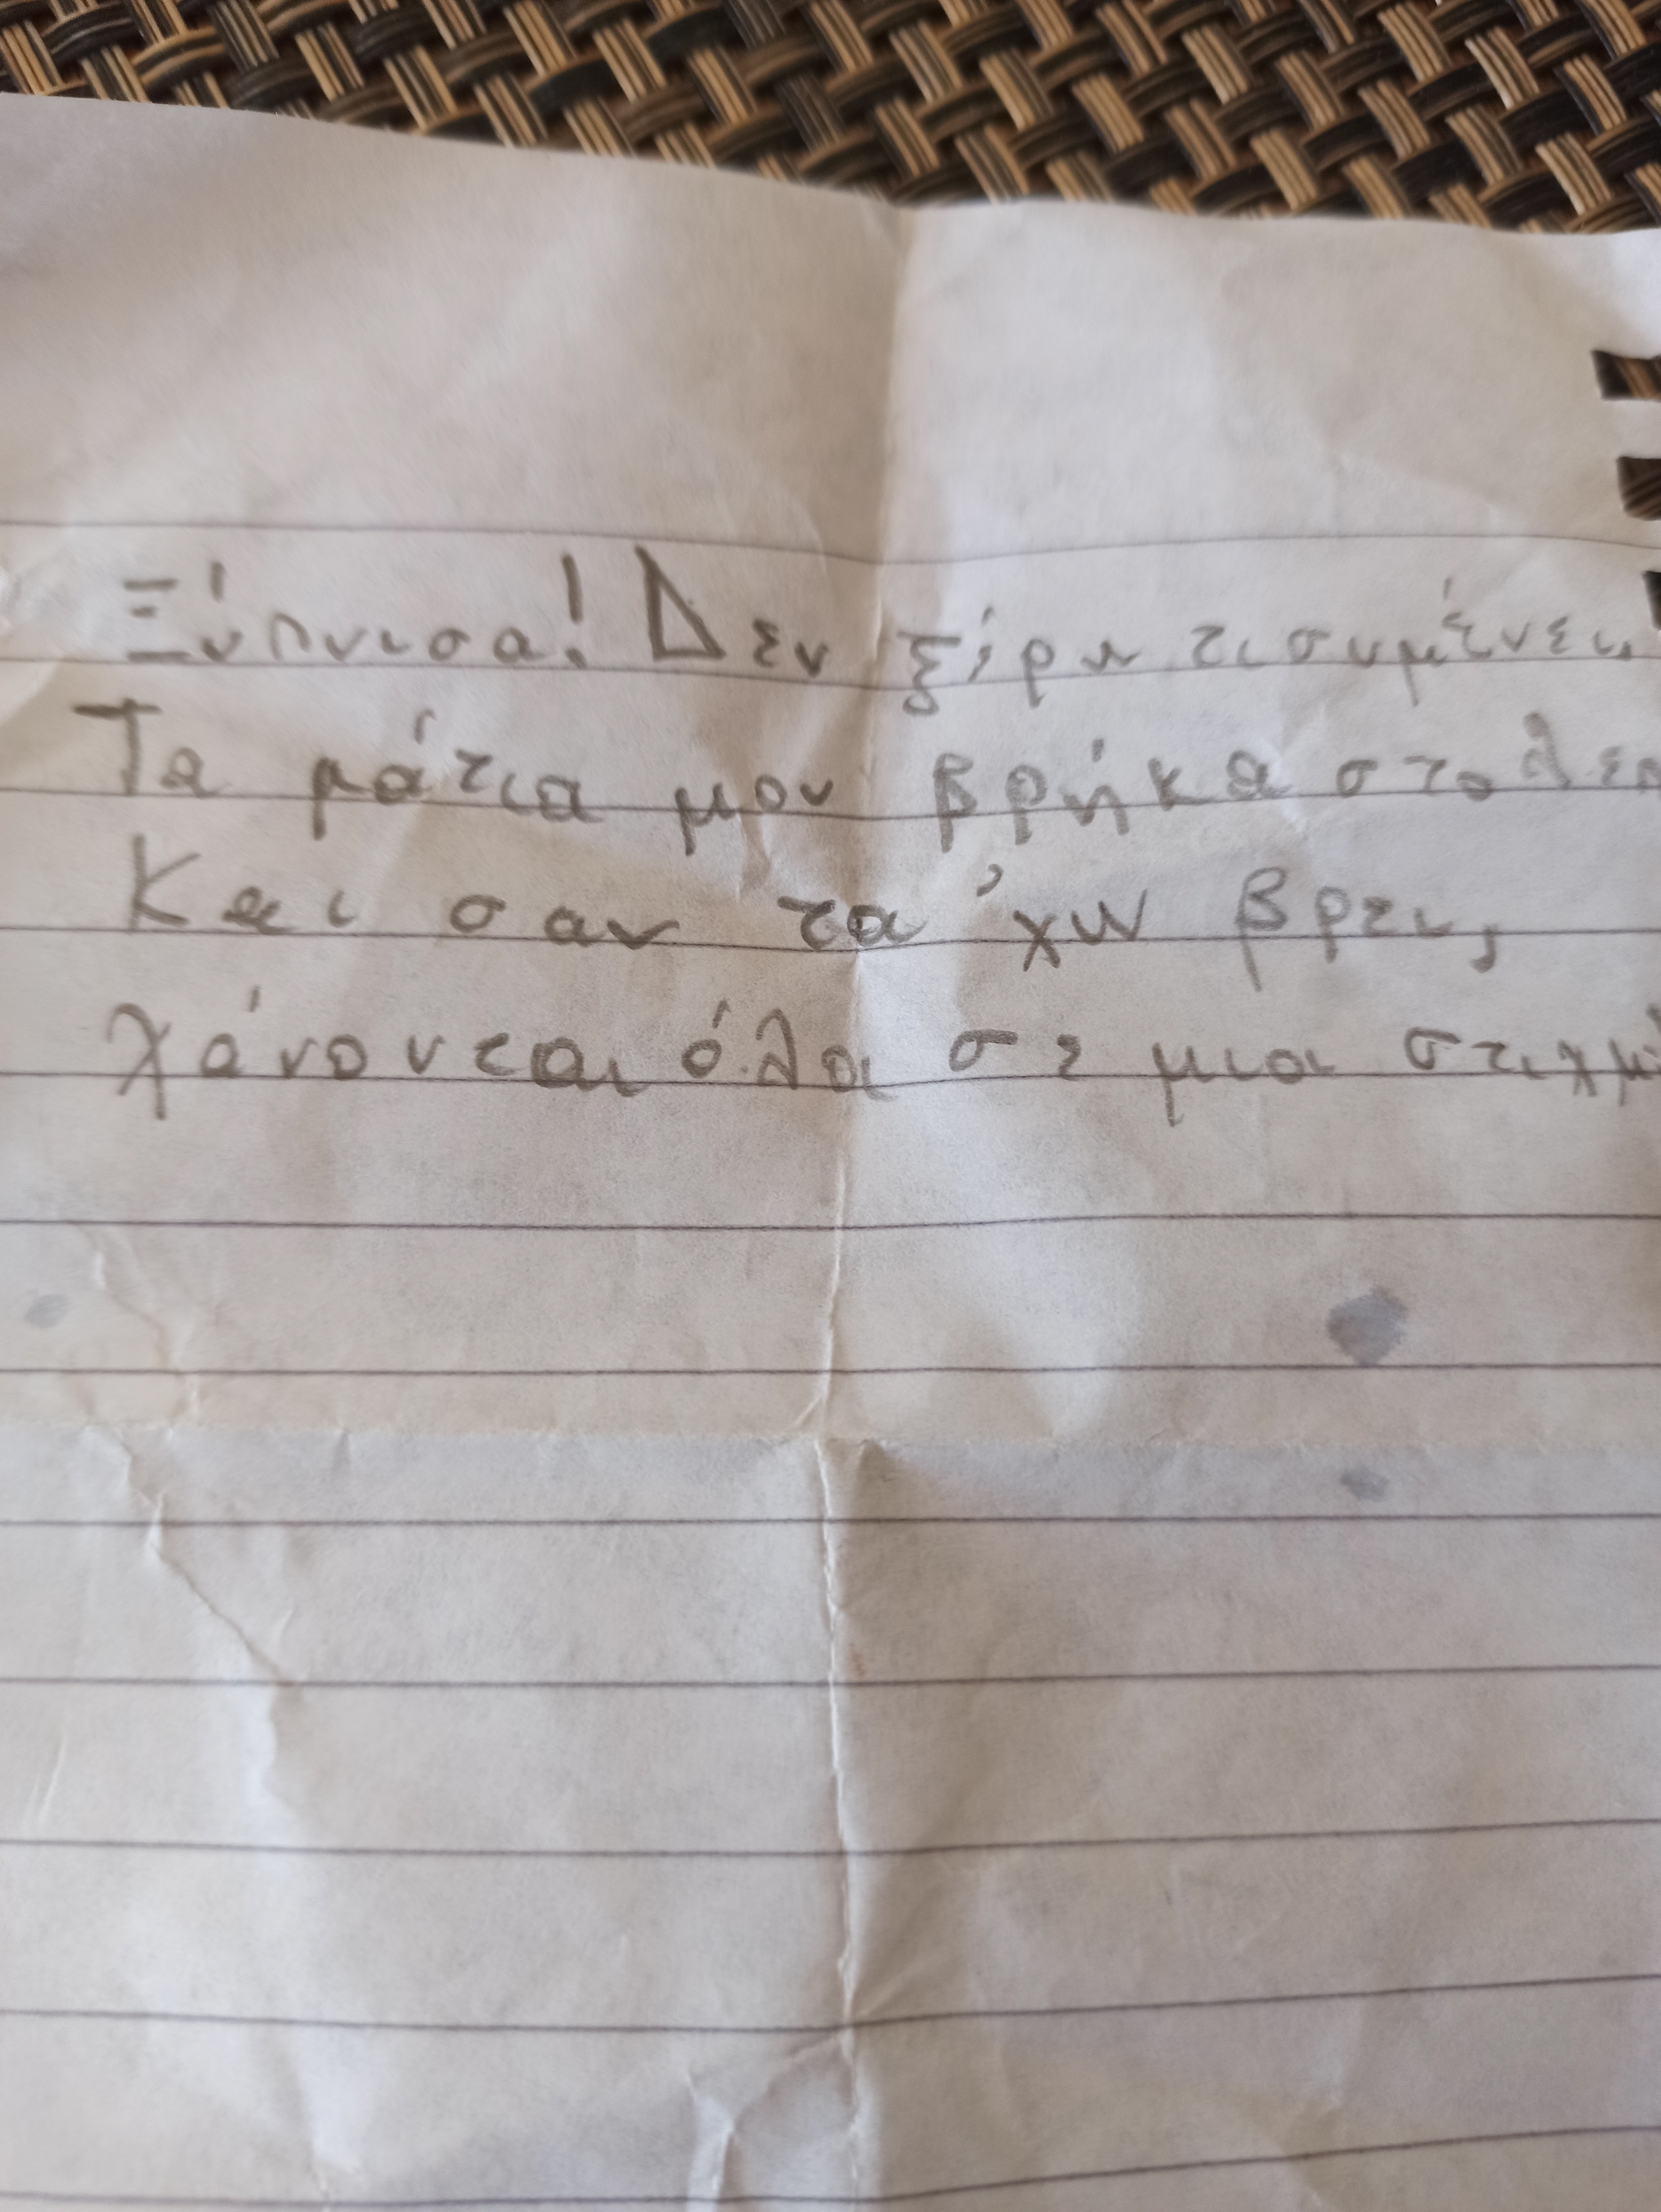 Ξύπνισα! Δεν ξέρω τι συμβαίνει,
Τα μάτια μου βρήκα στο
Και σαν τα 'χω βρει,
χάνονται όλα σε μια